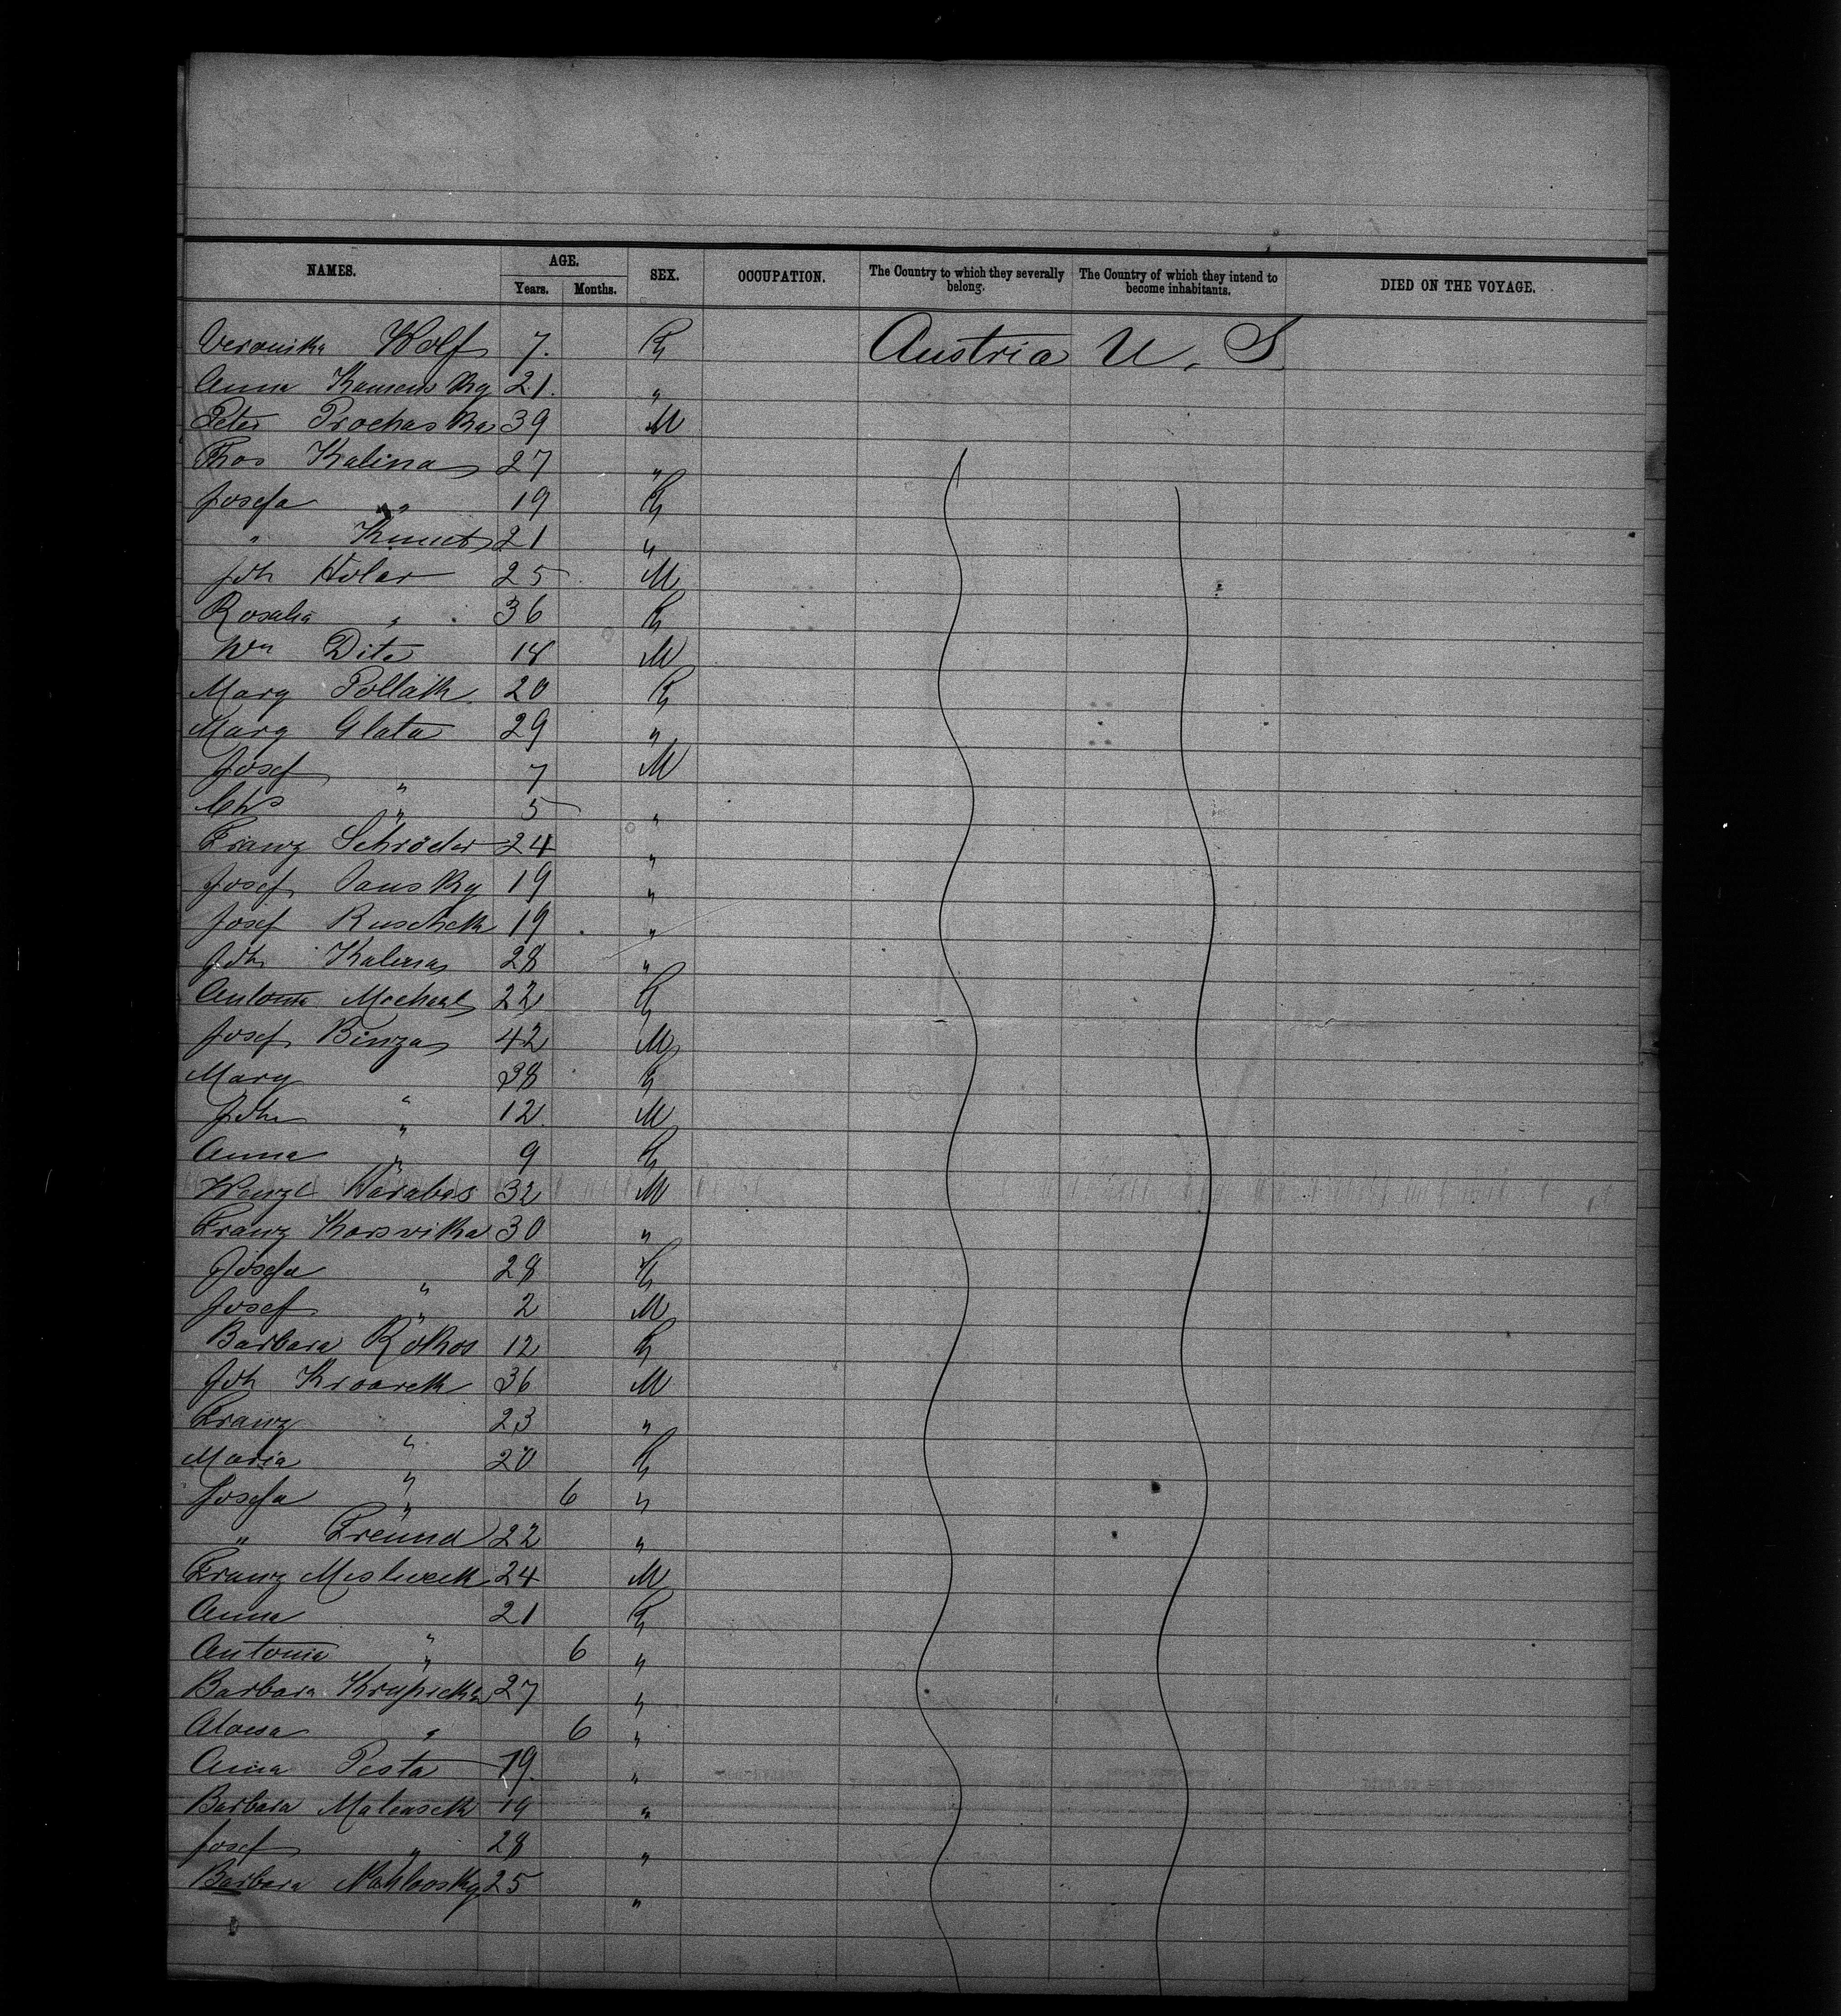 NAMES. AGE. SEX. OCCUPATION. The Country to which they severally belong. The Country of which they intend to become inhabitants. DIED ON THE VOYAGE.
Years. Months.
Veronika Wolf 7. F Austria U. S
Anna Kamensky 21. "
Peter Prochaska 39 M
Thos Kalina 27 "
Josefa " 19 F
" Kmet 21 "
Joh Holar 25 M
Rosalia " 36 F
Wm Dite 18 M
Mary Pollath 20 F
Mary Glata 29 "
Josef " 7 M
Chs " 5 "
Franz Schröder 24 "
Josef Jansky 19 "
Josef Ruschek 19 "
Joh Kalina 28 "
Antonia 22 F
Josef Binza 42 M
Mary " 38 F
Joh " 12 M
Anna " 9 F
Wenzl Karabas 32 M
Franz Korsvika 30 "
Josefa " 28 F
Josef " 2 M
Barbara Rokos 12 F
Joh Kroarek 36 M
Franz " 23 "
Maria " 20 F
Josefa " 6 "
" Freund 22 "
Franz Misliveck 24 M
Anna " 21 F
Antonia " 6 "
Barbara Krupicka 27 "
Aloesa " 6 "
Anna Pesta 19 "
Barbara Maleasek 19 "
Josef " 28 "
Barbara 25 "